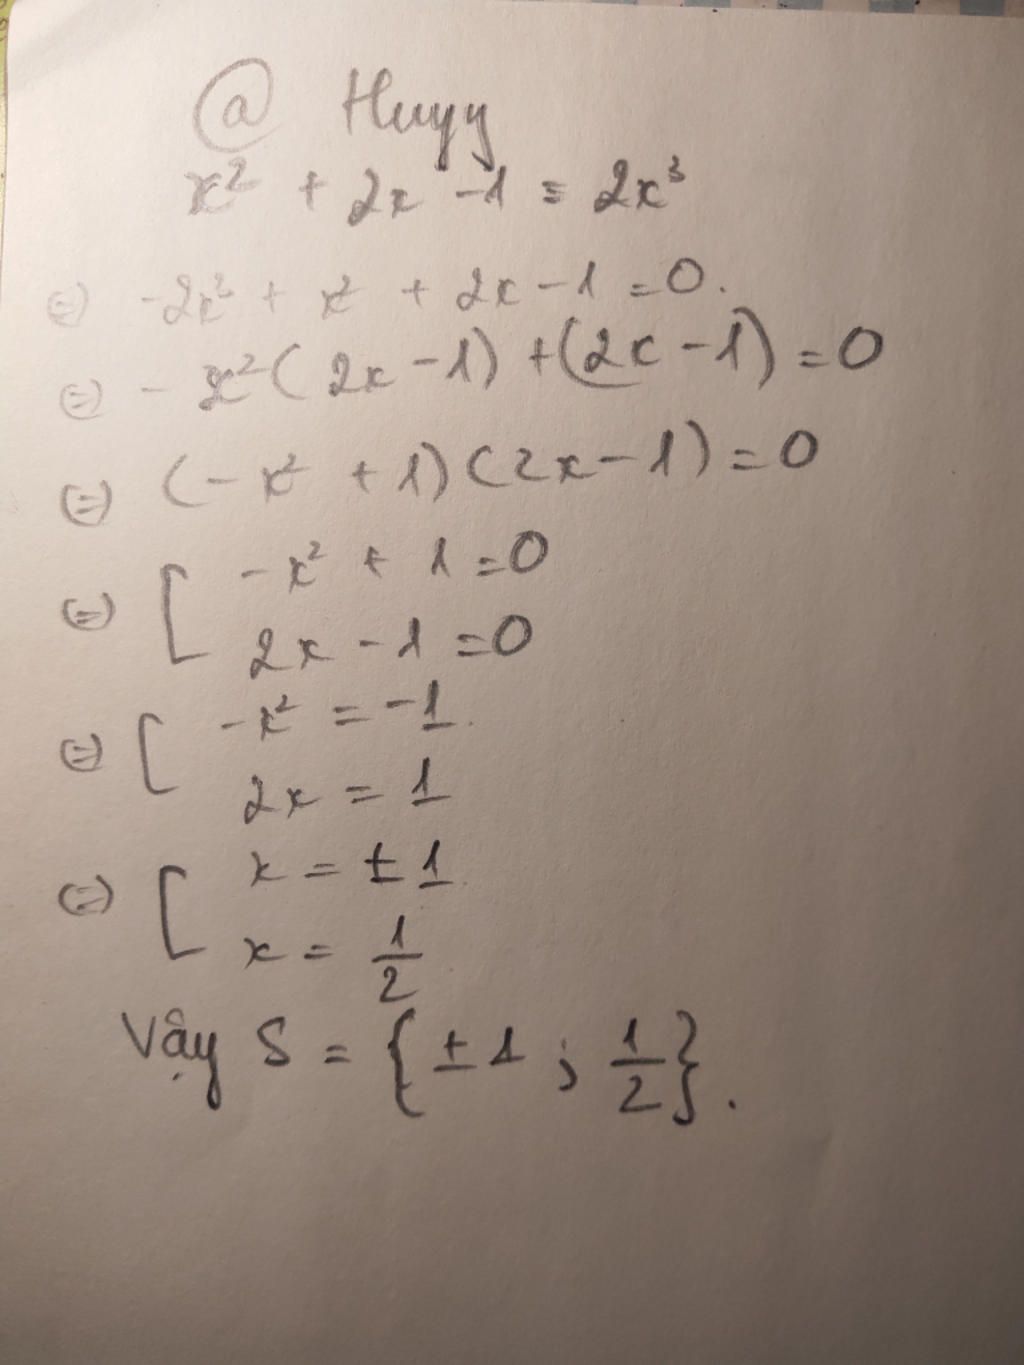 @ Huyy
x² + 2x - 1 = 2x³
⇔ -2x³ + x² + 2x - 1 = 0.
⇔ - x² ( 2x - 1) + (2x - 1) = 0
⇔ (- x² + 1) (2x - 1) = 0
⇔ [ - x² + 1 = 0
2x - 1 = 0
⇔ [ -x² = -1.
2x = 1
⇔ [ x = ± 1.
x = 1/2
Vậy S = { ± 1 ; 1/2 }.